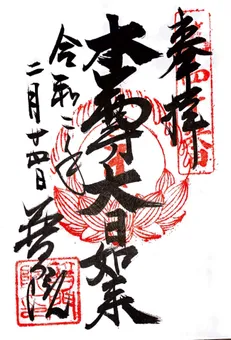 奉拝
本尊大日如来
令和二年
二月廿四日